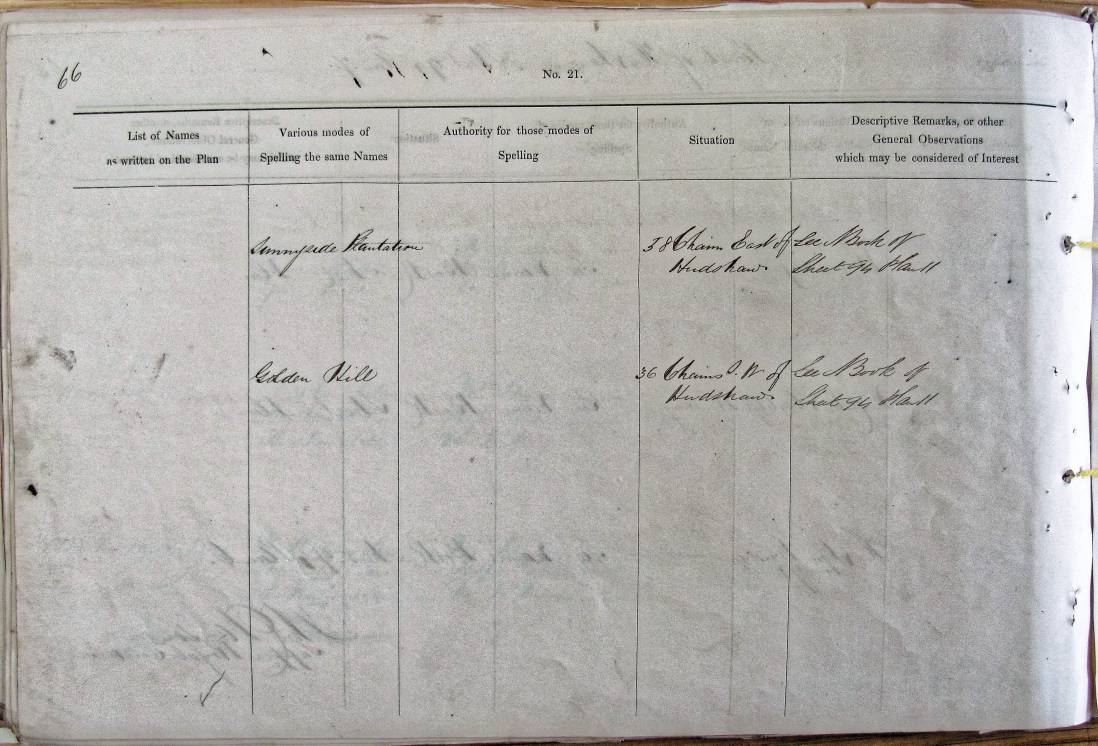 66
No. 21.
List of Names
as written on the Plan
Various modes of
Spelling the same Names
Authority for those modes of
Spelling
Situation
Descriptive Remarks, or other
General Observations
which may be considered of Interest
Sunnyside Plantation
38 Chains East of
Hudshaw.
See N Book of
Sheet 94 Plan 11
Golden Hill
36 Chains S.W of
Hudshaw.
See N Book of
Sheet 94 Plan 11